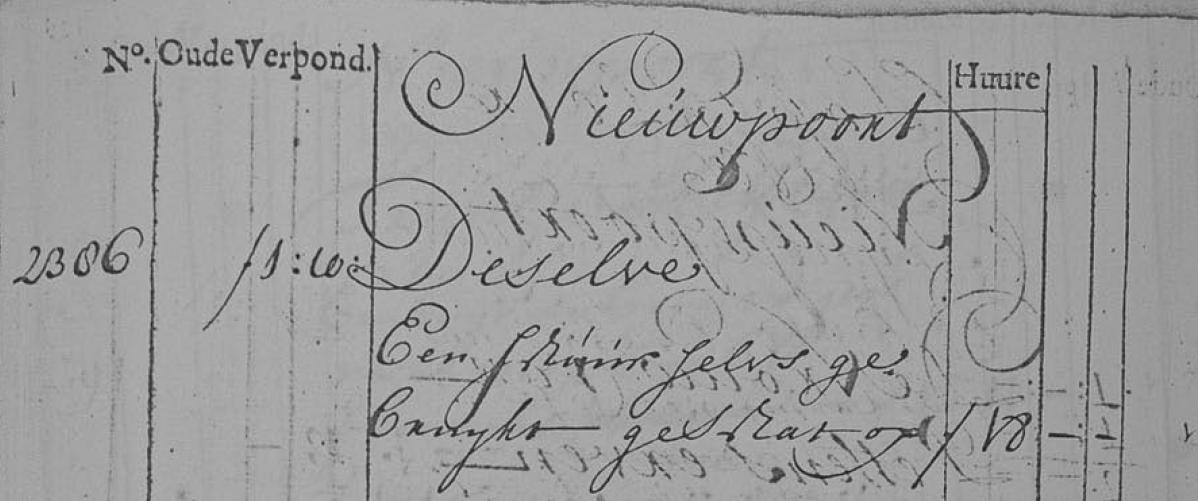 No. Oude Verpond. Nieuwpoort Huure
2386 f 1:10: Deselve
Een schuur selvs ge
bruykt geschat op f 18 - -